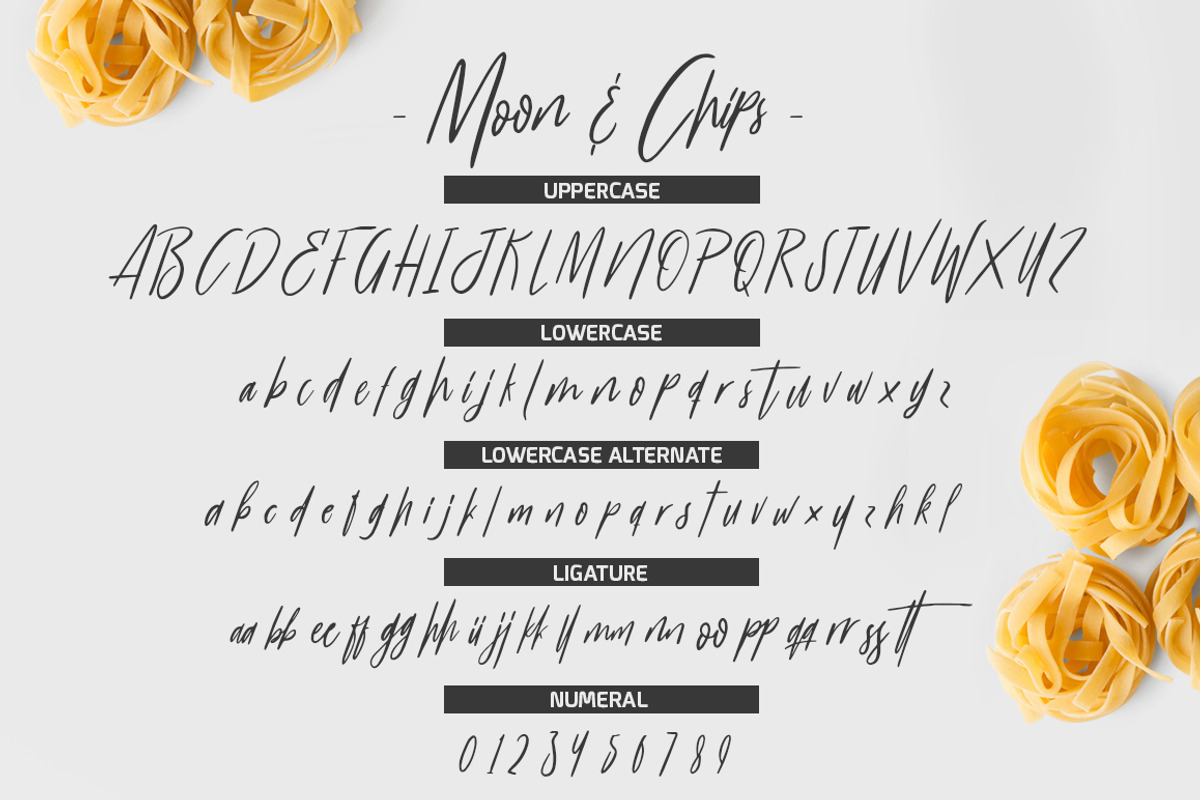 - Moon & Chips -
UPPERCASE
ABCDEFGHIJKLMNOPQRSTUVWXYZ
LOWERCASE
abcdefghijklmnopqrstuvwxyz
LOWERCASE ALTERNATE
abcdefghijklmnopqrstuvwxyzhkl
LIGATURE
aa bb ee ff gg hh ii jj kk ll mm nn oo pp qq rr ss tt
NUMERAL
0123456789